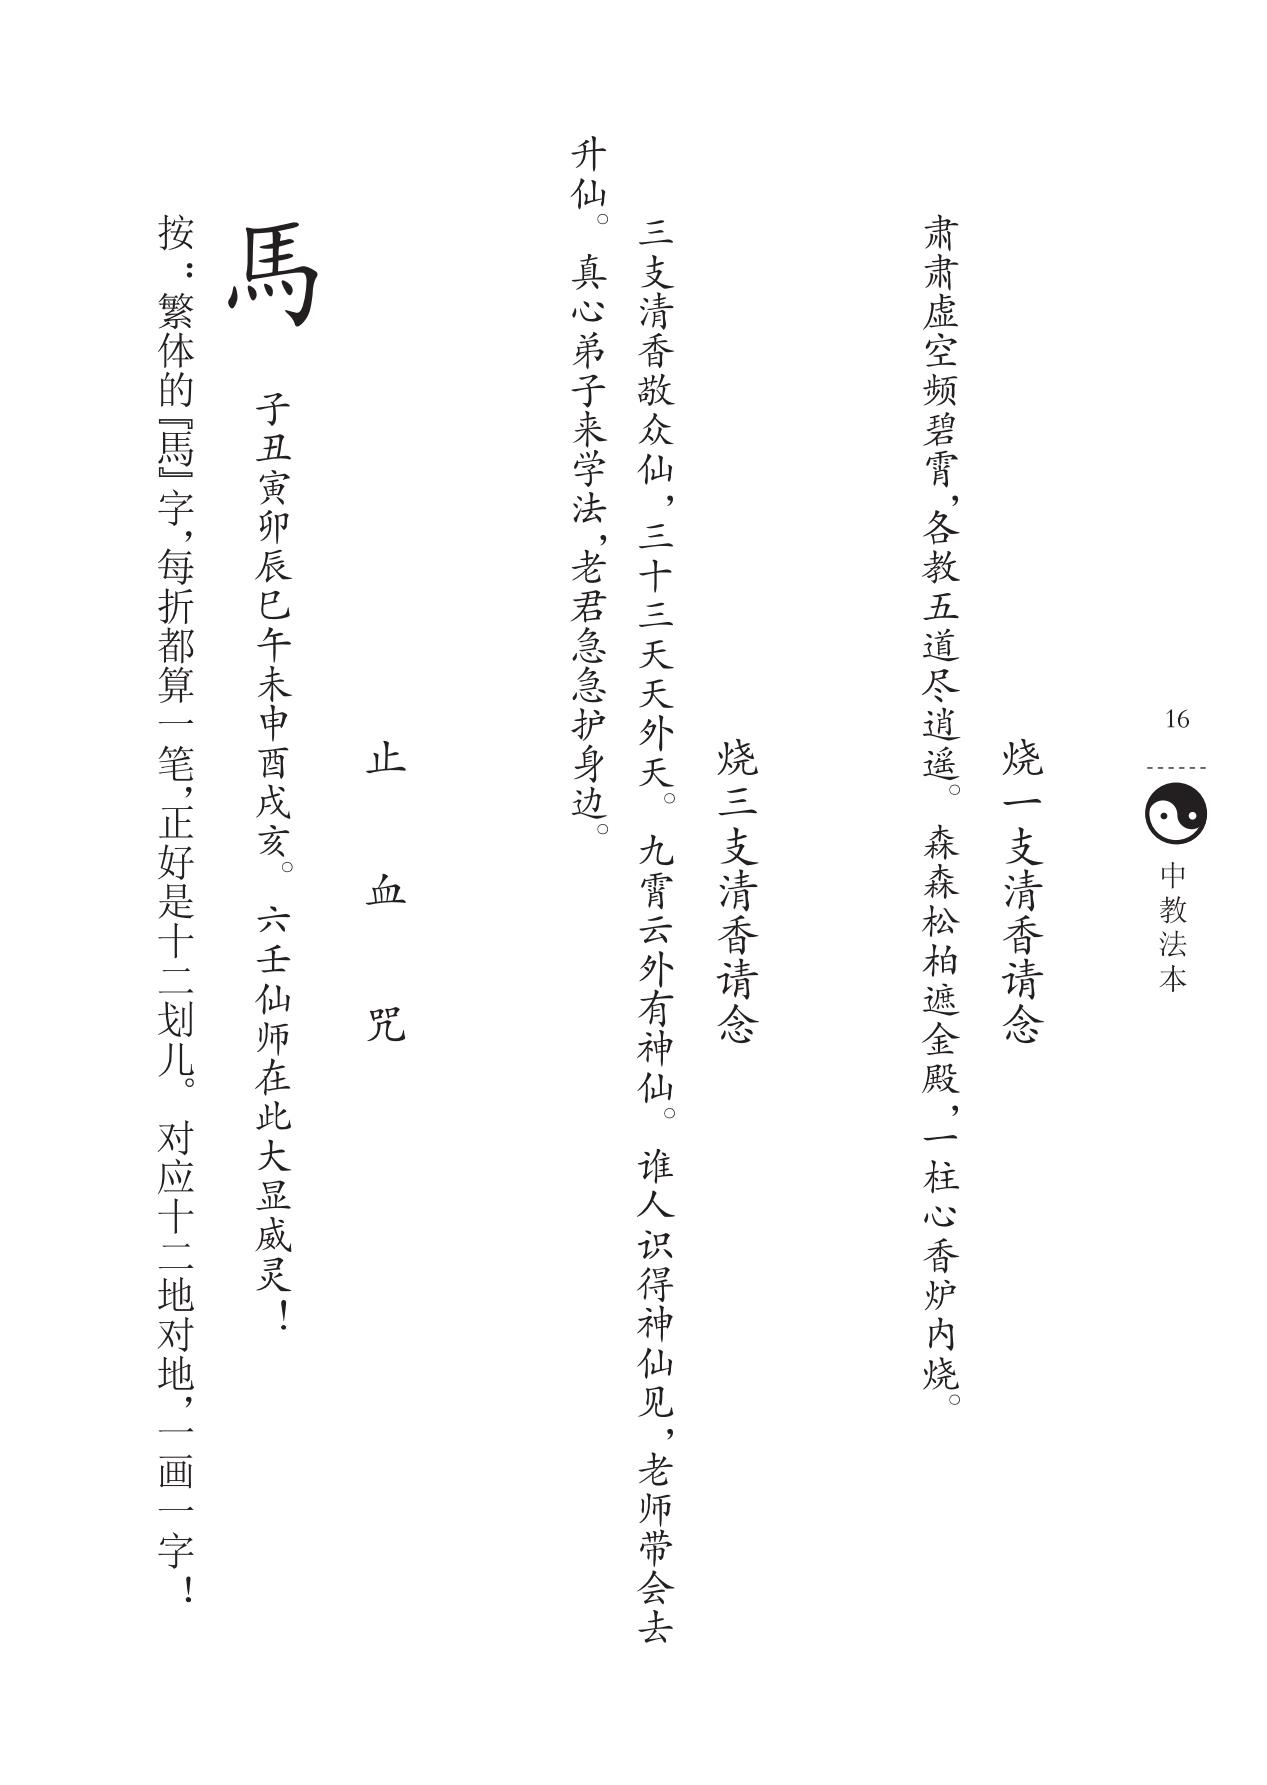 16
中教法本
烧一支清香请念
肃肃虚空频碧霄，各教五道尽逍遥。森森松柏遮金殿，一柱心香炉内烧。
烧三支清香请念
三支清香敬众仙，三十三天天外天。九霄云外有神仙。谁人识得神仙见，老师带会去
升仙。真心弟子来学法，老君急急护身边。
止血咒
馬 子丑寅卯辰巳午未申酉戌亥。六壬仙师在此大显威灵！
按：繁体的『馬』字，每折都算一笔，正好是十二划儿。对应十二地对地，一画一字！